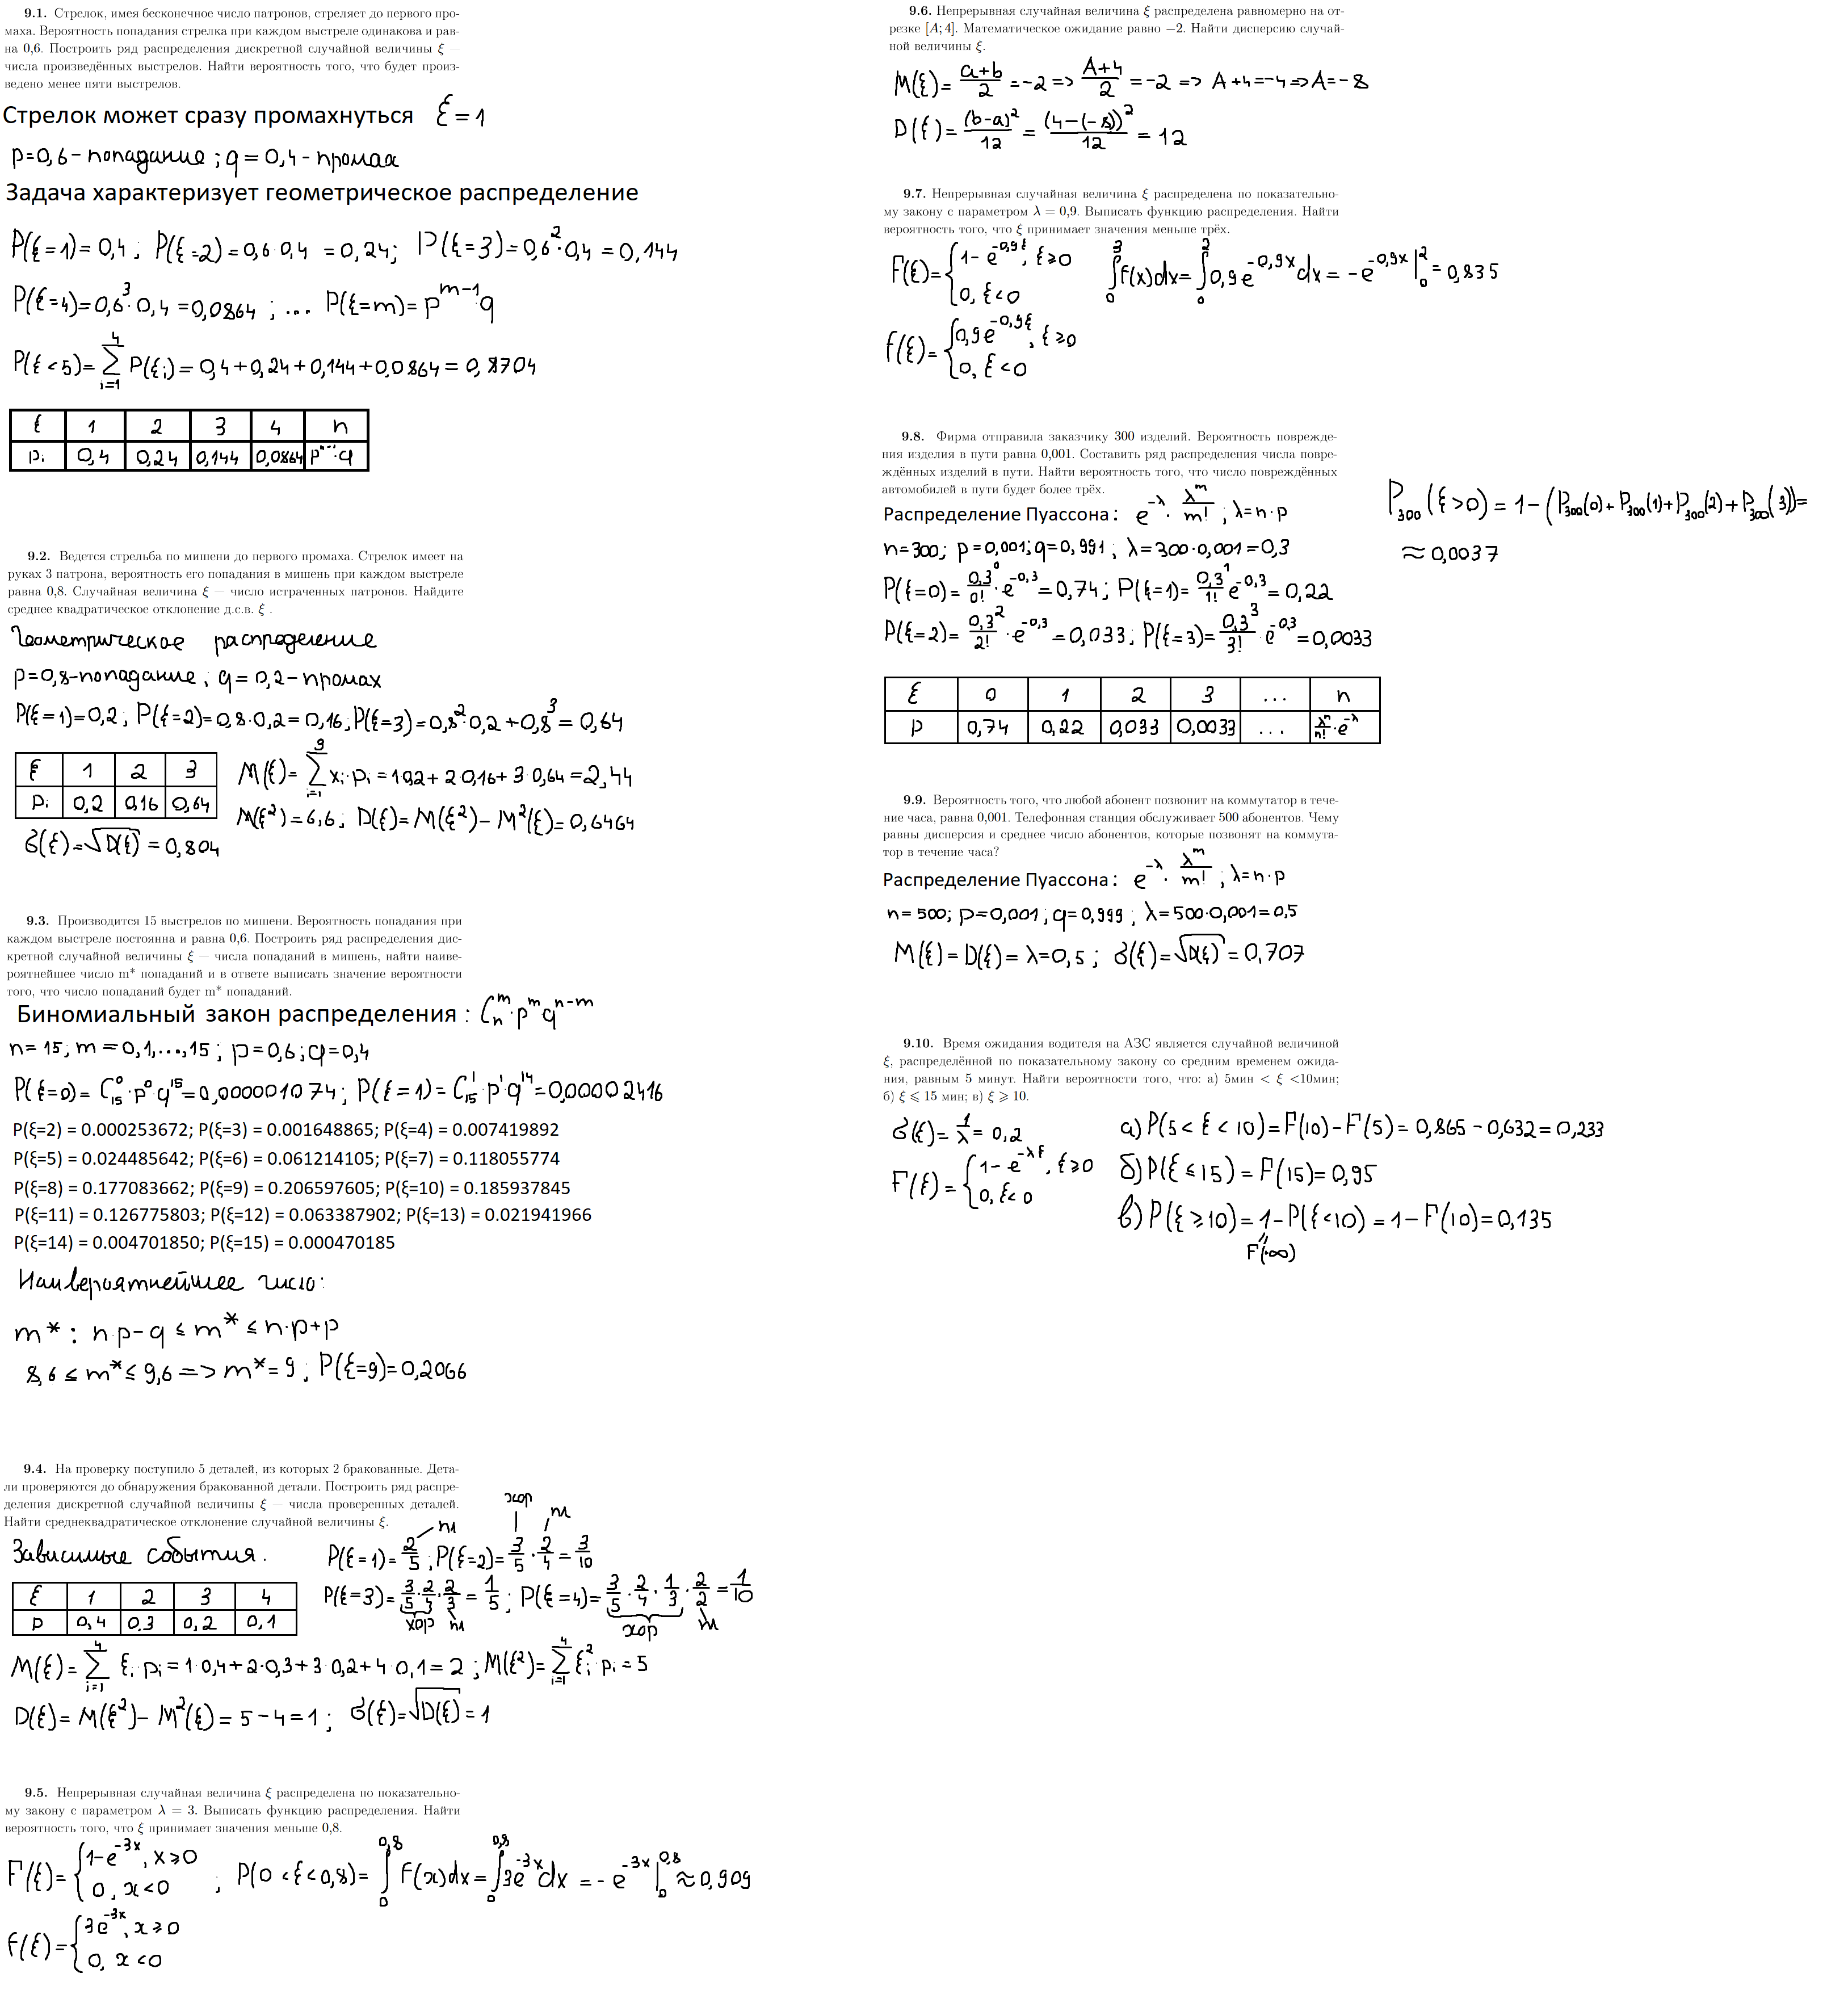 9.1. Стрелок, имея бесконечное число патронов, стреляет до первого про-
маха. Вероятность попадания стрелка при каждом выстреле одинакова и рав-
на 0,6. Построить ряд распределения дискретной случайной величины ξ —
числа произведённых выстрелов. Найти вероятность того, что будет произ-
ведено менее пяти выстрелов.
Стрелок может сразу промахнуться ξ = 1
p=0,6 - попадание ; q = 0,4 - промах
Задача характеризует геометрическое распределение
P(ξ=1) = 0,4 ; P(ξ=2) = 0,6·0,4 = 0,24; P(ξ=3) = 0,6²·0,4 = 0,144
P(ξ=4)=0,6³·0,4 = 0,0864 ; ... P(ξ=m) = p^{m-1} q
P(ξ<5)= ∑_{i=1}^{4} P(ξi) = 0,4+0,24+0,144+0,0864 = 0,8704
ξ 1 2 3 4 n
pi 0,4 0,24 0,144 0,0864 p^{n-1}·q
9.2. Ведется стрельба по мишени до первого промаха. Стрелок имеет на
руках 3 патрона, вероятность его попадания в мишень при каждом выстреле
равна 0,8. Случайная величина ξ — число истраченных патронов. Найдите
среднее квадратическое отклонение д.с.в. ξ .
Геометрическое распределение
p=0,8-попадание ; q = 0,2 - промах
P(ξ=1)=0,2 ; P(ξ=2)=0,8·0,2 = 0,16 ; P(ξ=3)=0,8²·0,2 + 0,8³ = 0,64
ξ 1 2 3
pi 0,2 0,16 0,64
M(ξ) = ∑_{i=1}^{3} xi·pi = 1·0,2 + 2·0,16 + 3·0,64 = 2,44
M(ξ²) = 6,6 ; D(ξ) = M(ξ²) - M²(ξ) = 0,6464
σ(ξ) = √D(ξ) = 0,804
9.3. Производится 15 выстрелов по мишени. Вероятность попадания при
каждом выстреле постоянна и равна 0,6. Построить ряд распределения дис-
кретной случайной величины ξ — числа попаданий в мишень, найти наиве-
роятнейшее число m* попаданий и в ответе выписать значение вероятности
того, что число попаданий будет m* попаданий.
Биномиальный закон распределения : C_n^m · p^m q^{n-m}
n = 15 ; m = 0,1,...,15 ; p=0,6 ; q=0,4
P(ξ=0) = C_{15}^0 · p^0 q^{15} = 0,000001074 ; P(ξ=1) = C_{15}^1 · p^1 q^{14} = 0,00002416
P(ξ=2) = 0.000253672; P(ξ=3) = 0.001648865; P(ξ=4) = 0.007419892
P(ξ=5) = 0.024485642; P(ξ=6) = 0.061214105; P(ξ=7) = 0.118055774
P(ξ=8) = 0.177083662; P(ξ=9) = 0.206597605; P(ξ=10) = 0.185937845
P(ξ=11) = 0.126775803; P(ξ=12) = 0.063387902; P(ξ=13) = 0.021941966
P(ξ=14) = 0.004701850; P(ξ=15) = 0.000470185
Наивероятнейшее число:
m* : n·p - q ≤ m* ≤ n·p + p
8,6 ≤ m* ≤ 9,6 => m* = 9 ; P(ξ=9) = 0,2066
9.4. На проверку поступило 5 деталей, из которых 2 бракованные. Дета-
ли проверяются до обнаружения бракованной детали. Построить ряд распре-
деления дискретной случайной величины ξ — числа проверенных деталей.
Найти среднеквадратическое отклонение случайной величины ξ.
хор пл
пл
Зависимые события. P(ξ=1) = 2/5 ; P(ξ=2) = 3/5 · 2/4 = 3/10
P(ξ=3) = 3/5 · 2/4 · 2/3 = 1/5 ; P(ξ=4) = 3/5 · 2/4 · 1/3 · 2/2 = 1/10
хор пл хор пл
ξ 1 2 3 4
p 0,4 0,3 0,2 0,1
M(ξ) = ∑_{i=1}^{4} ξi·pi = 1·0,4 + 2·0,3 + 3·0,2 + 4·0,1 = 2 ; M(ξ²) = ∑_{i=1}^{4} ξi²·pi = 5
D(ξ) = M(ξ²) - M²(ξ) = 5 - 4 = 1 ; σ(ξ) = √D(ξ) = 1
9.5. Непрерывная случайная величина ξ распределена по показательно-
му закону с параметром λ = 3. Выписать функцию распределения. Найти
вероятность того, что ξ принимает значения меньше 0,8.
F(ξ) = { 1-e^{-3x}, x ≥ 0
0, x < 0 ; P(0<ξ<0,8) = ∫_0^{0,8} f(x)dx = ∫_0^{0,8} 3e^{-3x}dx = -e^{-3x} |_0^{0,8} ≈ 0,909
f(ξ) = { 3e^{-3x}, x ≥ 0
0, x < 0
9.6. Непрерывная случайная величина ξ распределена равномерно на от-
резке [A; 4]. Математическое ожидание равно −2. Найти дисперсию случай-
ной величины ξ.
M(ξ) = (a+b)/2 = -2 => (A+4)/2 = -2 => A+4 = -4 => A = -8
D(ξ) = (b-a)²/12 = (4-(-8))²/12 = 12
9.7. Непрерывная случайная величина ξ распределена по показательно-
му закону с параметром λ = 0,9. Выписать функцию распределения. Найти
вероятность того, что ξ принимает значения меньше трёх.
F(ξ) = { 1-e^{-0,9ξ}, ξ ≥ 0
0, ξ < 0 ∫_0^3 f(x)dx = ∫_0^2 0,9e^{-0,9x}dx = -e^{-0,9x} |_0^2 = 0,835
f(ξ) = { 0,9e^{-0,9ξ}, ξ ≥ 0
0, ξ < 0
9.8. Фирма отправила заказчику 300 изделий. Вероятность поврежде-
ния изделия в пути равна 0,001. Составить ряд распределения числа повре-
ждённых изделий в пути. Найти вероятность того, что число повреждённых
автомобилей в пути будет более трёх.
Распределение Пуассона : e^{-λ} · λ^m/m! ; λ = n·p
n=300; p=0,001; q=0,991 ; λ = 300·0,001 = 0,3
P(ξ=0) = 0,3^0/0! · e^{-0,3} = 0,74 ; P(ξ=1) = 0,3^1/1! e^{-0,3} = 0,22
P(ξ=2) = 0,3²/2! · e^{-0,3} = 0,033 ; P(ξ=3) = 0,3³/3! · e^{-0,3} = 0,0033
P_{300}(ξ>0) = 1 - (P_{300}(0) + P_{300}(1) + P_{300}(2) + P_{300}(3)) =
≈ 0,0037
ξ 0 1 2 3 ... n
p 0,74 0,22 0,033 0,0033 ... λ^n/n! · e^{-λ}
9.9. Вероятность того, что любой абонент позвонит на коммутатор в тече-
ние часа, равна 0,001. Телефонная станция обслуживает 500 абонентов. Чему
равны дисперсия и среднее число абонентов, которые позвонят на коммута-
тор в течение часа?
Распределение Пуассона : e^{-λ} · λ^m/m! ; λ = n·p
n = 500; p=0,001 ; q = 0,999 ; λ = 500·0,001 = 0,5
M(ξ) = D(ξ) = λ = 0,5 ; σ(ξ) = √D(ξ) = 0,707
9.10. Время ожидания водителя на АЗС является случайной величиной
ξ, распределённой по показательному закону со средним временем ожида-
ния, равным 5 минут. Найти вероятности того, что: а) 5мин < ξ <10мин;
б) ξ ⩽ 15 мин; в) ξ ⩾ 10.
σ(ξ) = 1/λ = 0,2
F(ξ) = { 1-e^{-λξ}, ξ ≥ 0
0, ξ < 0
а) P(5 < ξ < 10) = F(10) - F(5) = 0,865 - 0,632 = 0,233
б) P(ξ ≤ 15) = F(15) = 0,95
в) P(ξ ≥ 10) = 1 - P(ξ < 10) = 1 - F(10) = 0,135
F(+∞)